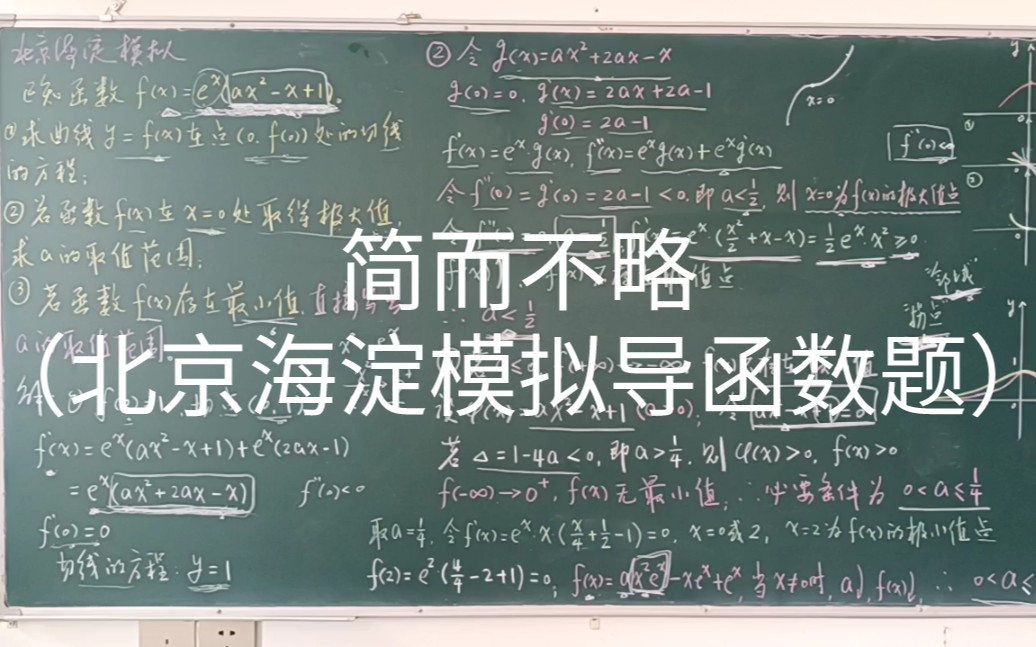 北京海淀模拟
已知函数 f(x)=eˣ(ax²-x+1).
①求曲线 y=f(x)在点(0,f(0))处的切线
的方程;
②若函数f(x)在x=0处取得极大值,
求a的取值范围;
③若函数f(x)存在最小值,直接
a的取值范围.
f'(x)=eˣ(ax²-x+1)+eˣ(2ax-1)
=eˣ(ax²+2ax-x) f''(0)<0
f'(0)=0
切线的方程: y=1
②令 g(x)=ax²+2ax-x
g(0)=0, g'(x)=2ax+2a-1
g'(0)=2a-1
f'(x)=eˣ·g(x), f''(x)=eˣg(x)+eˣg'(x)
令f''(0)=g'(0)=2a-1<0,即a<1/2,则x=0为f(x)的极大值点
=eˣ·(x²/2+x-x)=1/2eˣ·x²≥0
值点
∴ a<1/2
若△=1-4a<0,即a>1/4,则φ(x)>0, f(x)>0
f(-∞)→0⁺, f(x)无最小值, ∴必要条件为 0<a≤1/4
取a=1/4,令f'(x)=eˣ·x(x/4+1/2-1)=0, x=0或2, x=2为f(x)的极小值点
f(2)=e²·(4/4-2+1)=0; f(x)=a(x²eˣ)-xeˣ+eˣ,当x≠0时,a↓,f(x)↓, ∴ 0<a≤
x=0
f''(0)<0
拐点
y
x
简而不略
(北京海淀模拟导函数题)